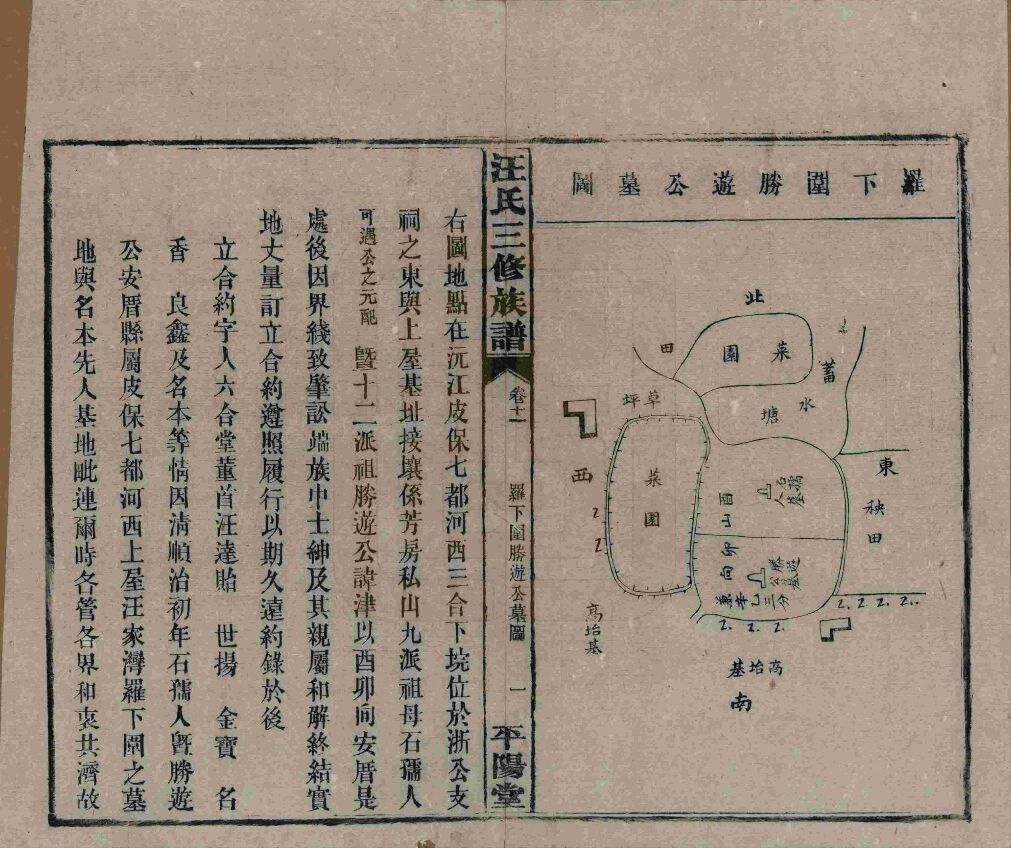 羅下圍勝遊公墓圖
北
菜園
田
蓄
水塘
草坪
西
菜園
東
秧田
石孺人墓
酉山卯向兼辛乙三分
勝遊公墓
高坮基
高坮基
南
汪氏三修族譜
卷十一
羅下圍勝遊公墓圖
一
平陽堂
右圖地點在沅江皮保七都河西三合下垸位於浙公支
祠之東與上屋基址接壤係芳房私山九派祖母石孺人
可遇公之元配 曁十二派祖勝遊公諱津以酉卯向安厝是
處後因界綫致肇訟端族中士紳及其親屬和解終結實
地丈量訂立合約遵照履行以期久遠約錄於後
立合約字人六合堂董首汪達貽 世揚 金寶 名
香 良鑫及名本等情因清順治初年石孺人曁勝遊
公安厝縣屬皮保七都河西上屋汪家灣羅下圍之墓
地與名本先人基地毗連爾時各管各界和衷共濟故